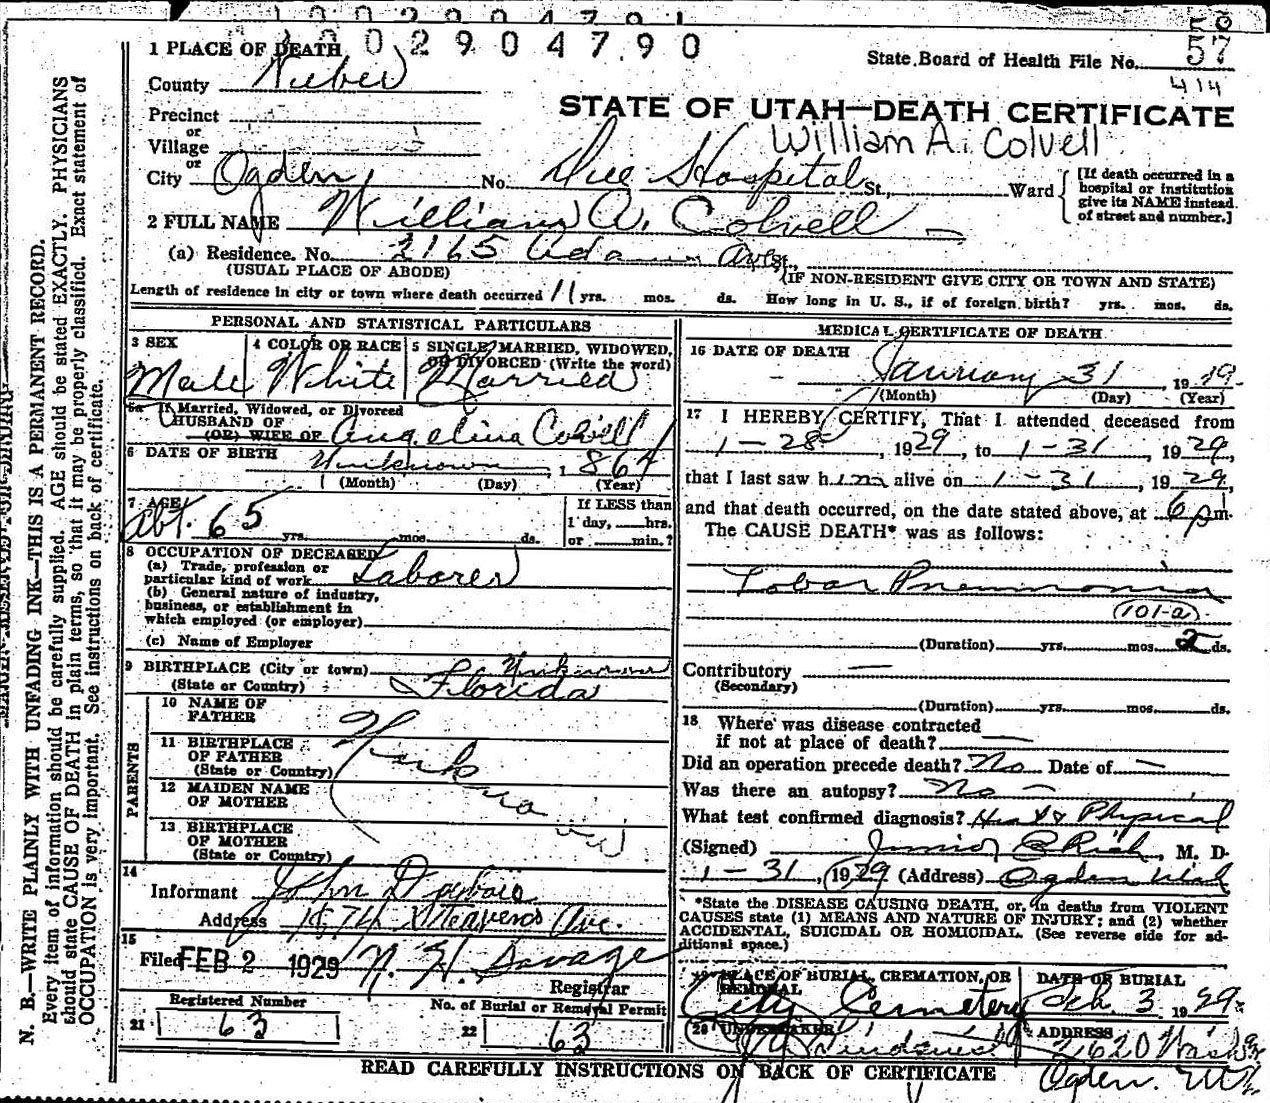 1002904791
1002904790
1 PLACE OF DEATH
State Board of Health File No. 57
58
414
County Weber
STATE OF UTAH—DEATH CERTIFICATE
William A. Colvell
Precinct
or
Village
or
City Ogden No. Dee Hospital St., Ward
[If death occurred in a hospital or institution give its NAME instead of street and number.]
2 FULL NAME William A. Colvell
(a) Residence. No. 2165 Adams Ave St.,
(USUAL PLACE OF ABODE) (IF NON-RESIDENT GIVE CITY OR TOWN AND STATE)
Length of residence in city or town where death occurred 11 yrs. mos. ds. How long in U. S., if of foreign birth? yrs. mos. ds.
PERSONAL AND STATISTICAL PARTICULARS
3 SEX Male
4 COLOR OR RACE White
5 SINGLE, MARRIED, WIDOWED, OR DIVORCED (Write the word) Married
5a If Married, Widowed, or Divorced
HUSBAND OF
(OR) WIFE OF Angelina Colvell
6 DATE OF BIRTH Unknown, 1864
(Month) (Day) (Year)
7 AGE
abt. 65 yrs. mos. ds.
If LESS than
1 day, hrs.
or min.?
8 OCCUPATION OF DECEASED
(a) Trade, profession or
particular kind of work Laborer
(b) General nature of industry,
business, or establishment in
which employed (or employer)
(c) Name of Employer
9 BIRTHPLACE (City or town) Unknown
(State or Country) Florida
PARENTS
10 NAME OF
FATHER
11 BIRTHPLACE
OF FATHER
(State or Country)
Unknown
12 MAIDEN NAME
OF MOTHER
13 BIRTHPLACE
OF MOTHER
(State or Country)
14
Informant John
Address Ave.
15
Filed FEB 2 1929 N. H. Savage
Registrar
Registered Number
21 63
No. of Burial or Removal Permit
22 63
MEDICAL CERTIFICATE OF DEATH
16 DATE OF DEATH
January 31, 1929
(Month) (Day) (Year)
17 I HEREBY CERTIFY, That I attended deceased from
1-28, 1929, to 1-31, 1929,
that I last saw him alive on 1-31, 1929,
and that death occurred, on the date stated above, at 6 p m.
The CAUSE DEATH* was as follows:
Lobar Pneumonia
(101-a)
(Duration) yrs. mos. 2 ds.
Contributory —
(Secondary)
(Duration) yrs. mos. ds.
18 Where was disease contracted
if not at place of death? —
Did an operation precede death? No Date of —
Was there an autopsy? No —
What test confirmed diagnosis? Hist & Physical
(Signed) Junior E Rich, M. D.
1-31, 1929 (Address) Ogden Utah
*State the DISEASE CAUSING DEATH, or, in deaths from VIOLENT
CAUSES state (1) MEANS AND NATURE OF INJURY; and (2) whether
ACCIDENTAL, SUICIDAL OR HOMICIDAL. (See reverse side for ad-
ditional space.)
19 PLACE OF BURIAL, CREMATION, OR
REMOVAL
City Cemetery
DATE OF BURIAL
Feb. 3 1929
20 UNDERTAKER
ADDRESS
2620 Wash
Ogden. Ut
READ CAREFULLY INSTRUCTIONS ON BACK OF CERTIFICATE
N. B.—WRITE PLAINLY WITH UNFADING INK—THIS IS A PERMANENT RECORD.
Every item of information should be carefully supplied. AGE should be stated EXACTLY. PHYSICIANS
should state CAUSE OF DEATH in plain terms, so that it may be properly classified. Exact statement of
OCCUPATION is very important. See instructions on back of certificate.